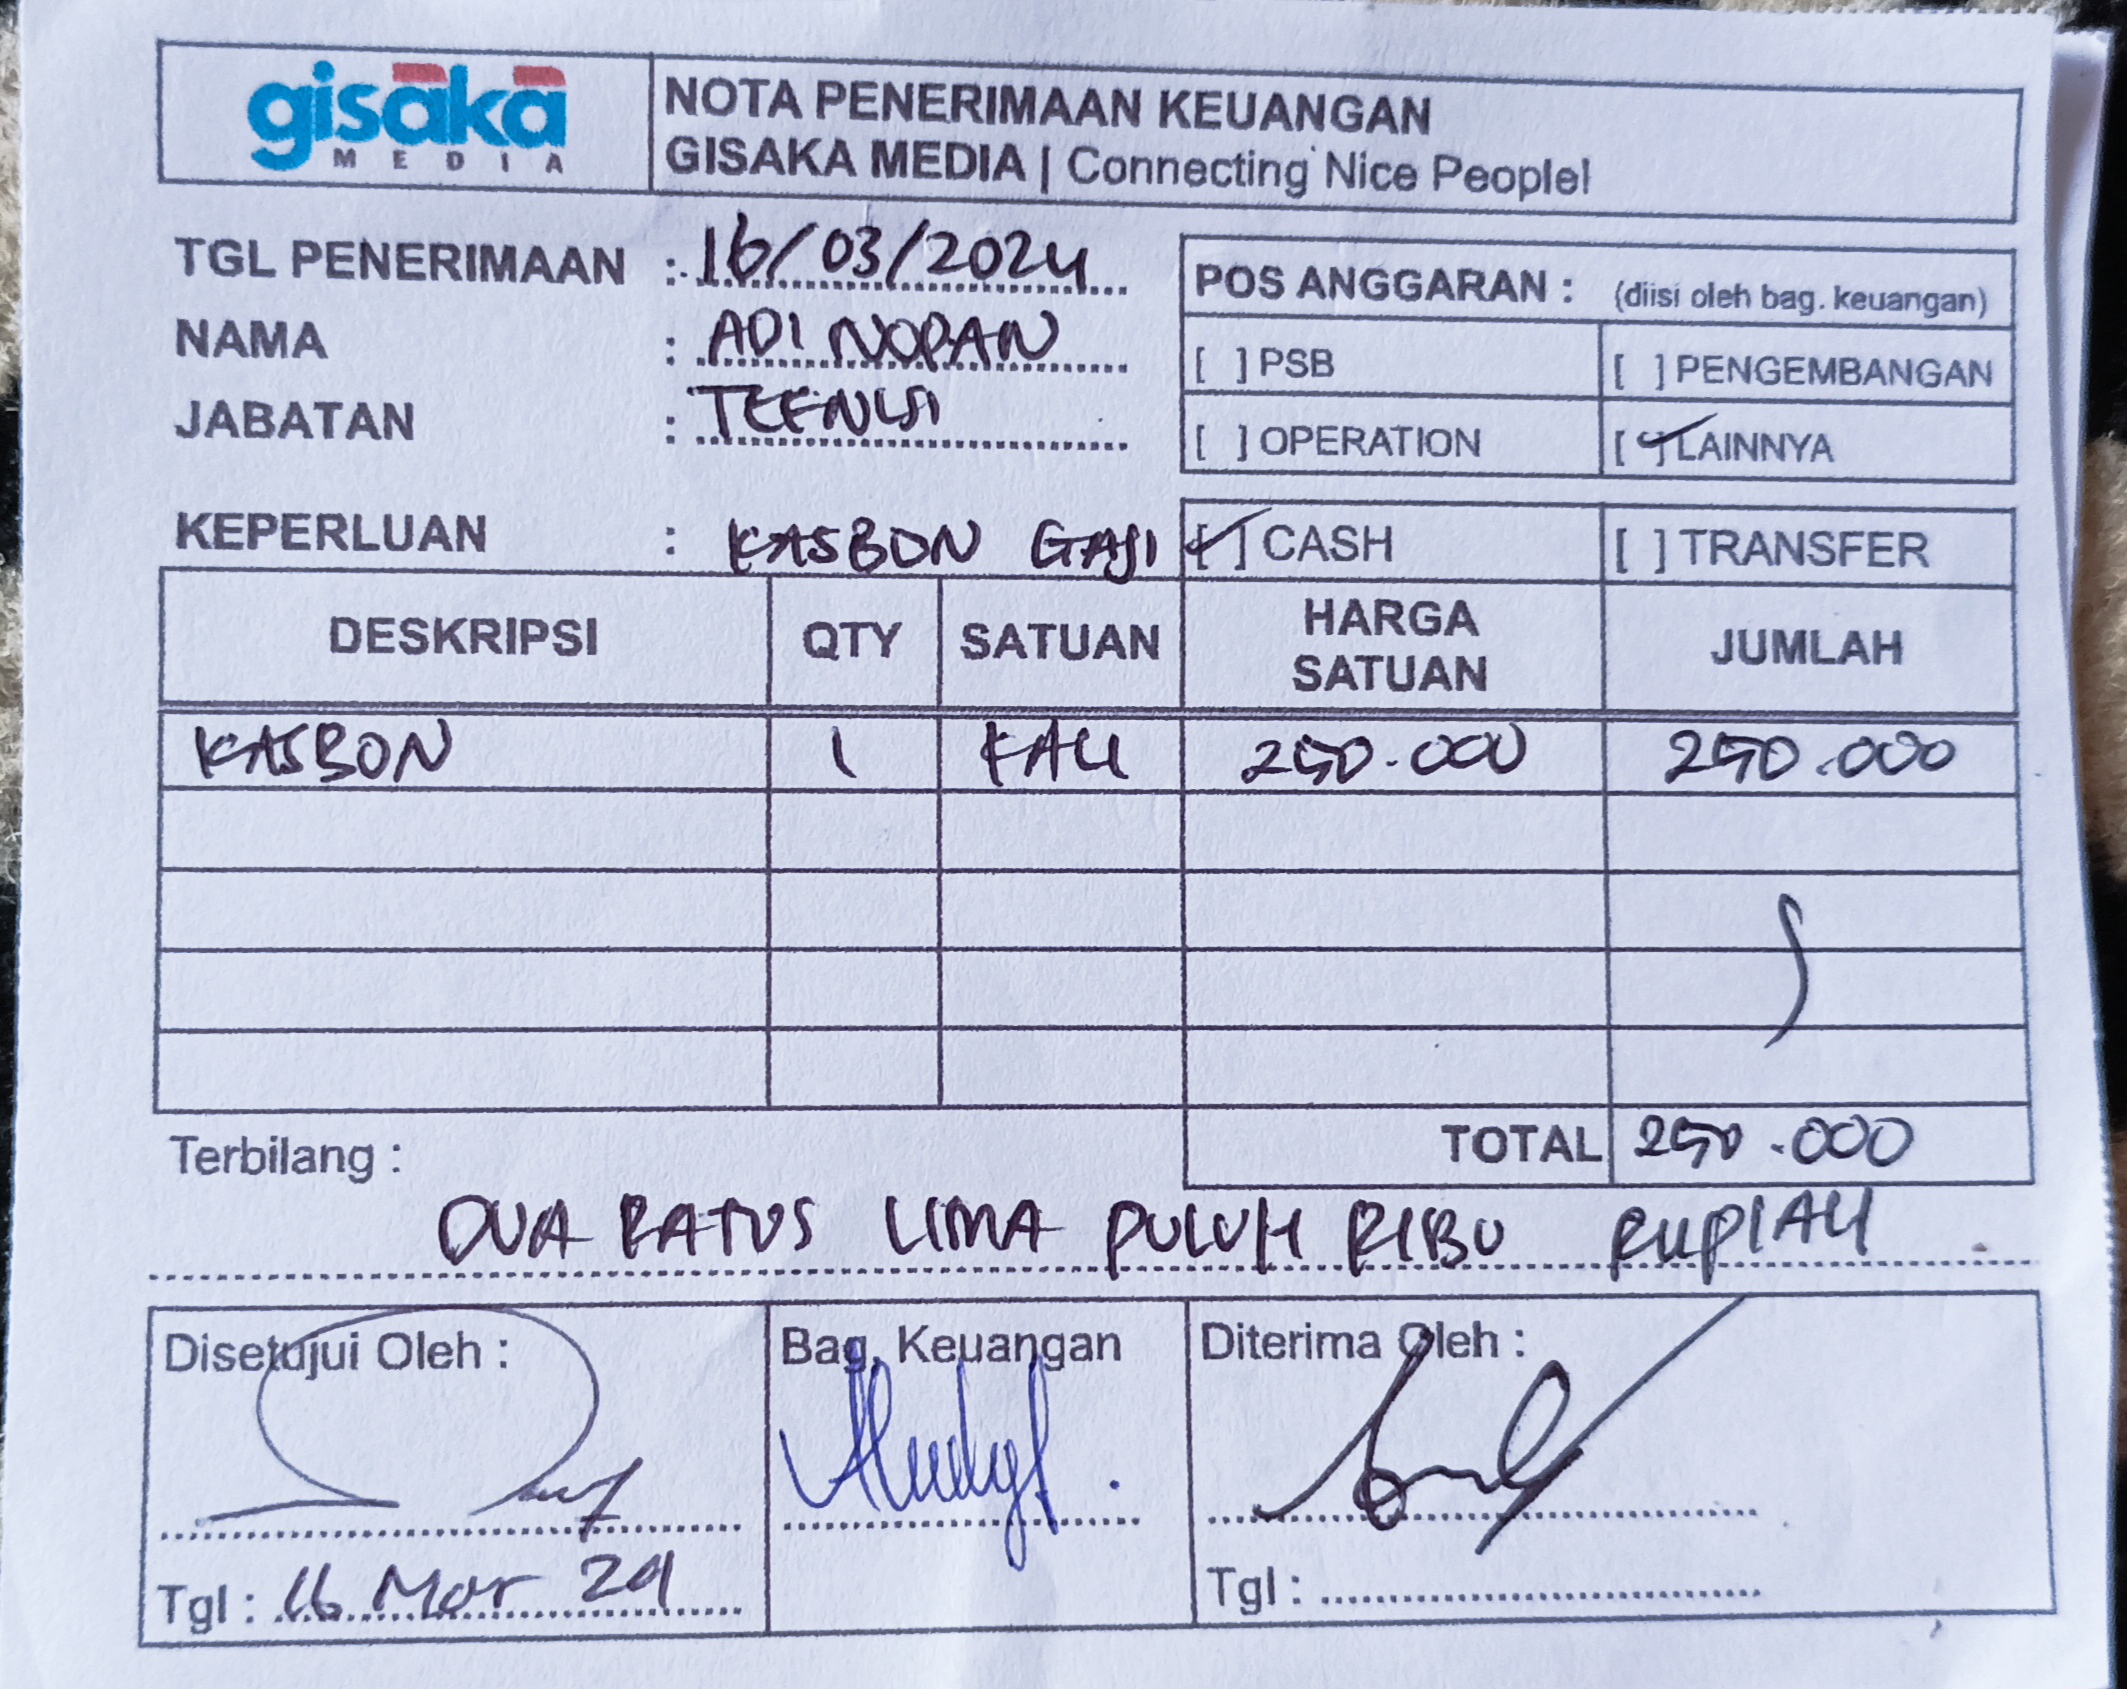 gisaka
MEDIA
NOTA PENERIMAAN KEUANGAN
GISAKA MEDIA | Connecting Nice People!
TGL PENERIMAAN : 16/03/2024
NAMA : ADI NOPAN
JABATAN : TEKNISI
POS ANGGARAN : (diisi oleh bag. keuangan)
[ ] PSB [ ] PENGEMBANGAN
[ ] OPERATION [✓] LAINNYA
KEPERLUAN : KASBON GAJI [✓] CASH [ ] TRANSFER
DESKRIPSI QTY SATUAN HARGA SATUAN JUMLAH
KASBON 1 KALI 250.000 250.000
TOTAL 250.000
Terbilang :
DUA RATUS LIMA PULUH RIBU RUPIAH
Disetujui Oleh : Bag. Keuangan Diterima Oleh :
Tgl : 16 Mar 24 Tgl :